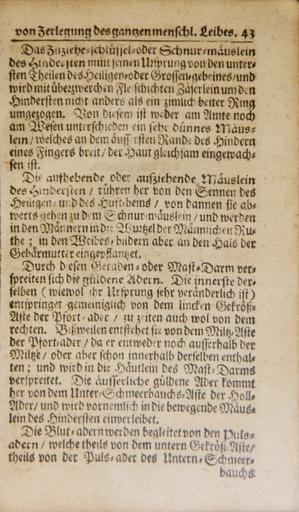 von Zerlegung des gantzen menschl. Leibes. 43
Das Zuziehe-schlüssel-oder Schnur-mäuslein
des Hindersten nimt seinen Ursprung von den unter-
sten Theilen des Heiligen-oder Grossen-gebeines/und
wird mit überzwerchen Fleischichten Zäserlein um den
Hindersten nicht anders als ein zimlich breiter Ring
umgezogen. Von diesem ist weder am Amte noch
am Wesen unterschieden ein sehr dünnes Mäus-
lein/ welches an dem äussersten Rande des Hindern
eines Fingers breit/ der Haut gleichsam eingewach-
sen ist.
Die aufhebende oder aufziehende Mäuslein
des Hindersten / rühren her von den Sennen des
Heiligen- und des Huft-beins/ von dannen sie ab-
werts gehen zu dem Schnur-mäuslein/ und werden
in den Männern in die Wurtzel der Männlichen Ru-
the; in den Weibes-bildern aber an den Hals der
Gebärmutter eingepflantzet.
Durch diesen Geraden- oder Mast-Darm ver-
spreiten sich die güldene Adern. Die innerste der-
selben (wiewol ihr Ursprung sehr veränderlich ist)
entspringet gemeiniglich von dem lincken Gekröß-
Aste der Pfort-ader / zu zeiten auch wol von dem
rechten. Bißweilen entstehet sie von dem Miltz-Aste
der Pfort-ader/ da er entweder noch ausserhalb der
Miltze/ oder aber schon innerhalb derselben enthal-
ten; und wird in die Häutlein des Mast-Darms
verspreitet. Die äusserliche güldene Ader kommt
her von dem Unter-Schmeerbauchs-Aste der Holl-
Ader/ und wird vornemlich in die bewegende Mäus-
lein des Hindersten einverleibet.
Die Blut-adern werden begleitet von den Puls-
adern/ welche theils von dem untern Gekröß-Aste/
theils von der Puls-ader des Untern-Schmeer-
bauchs